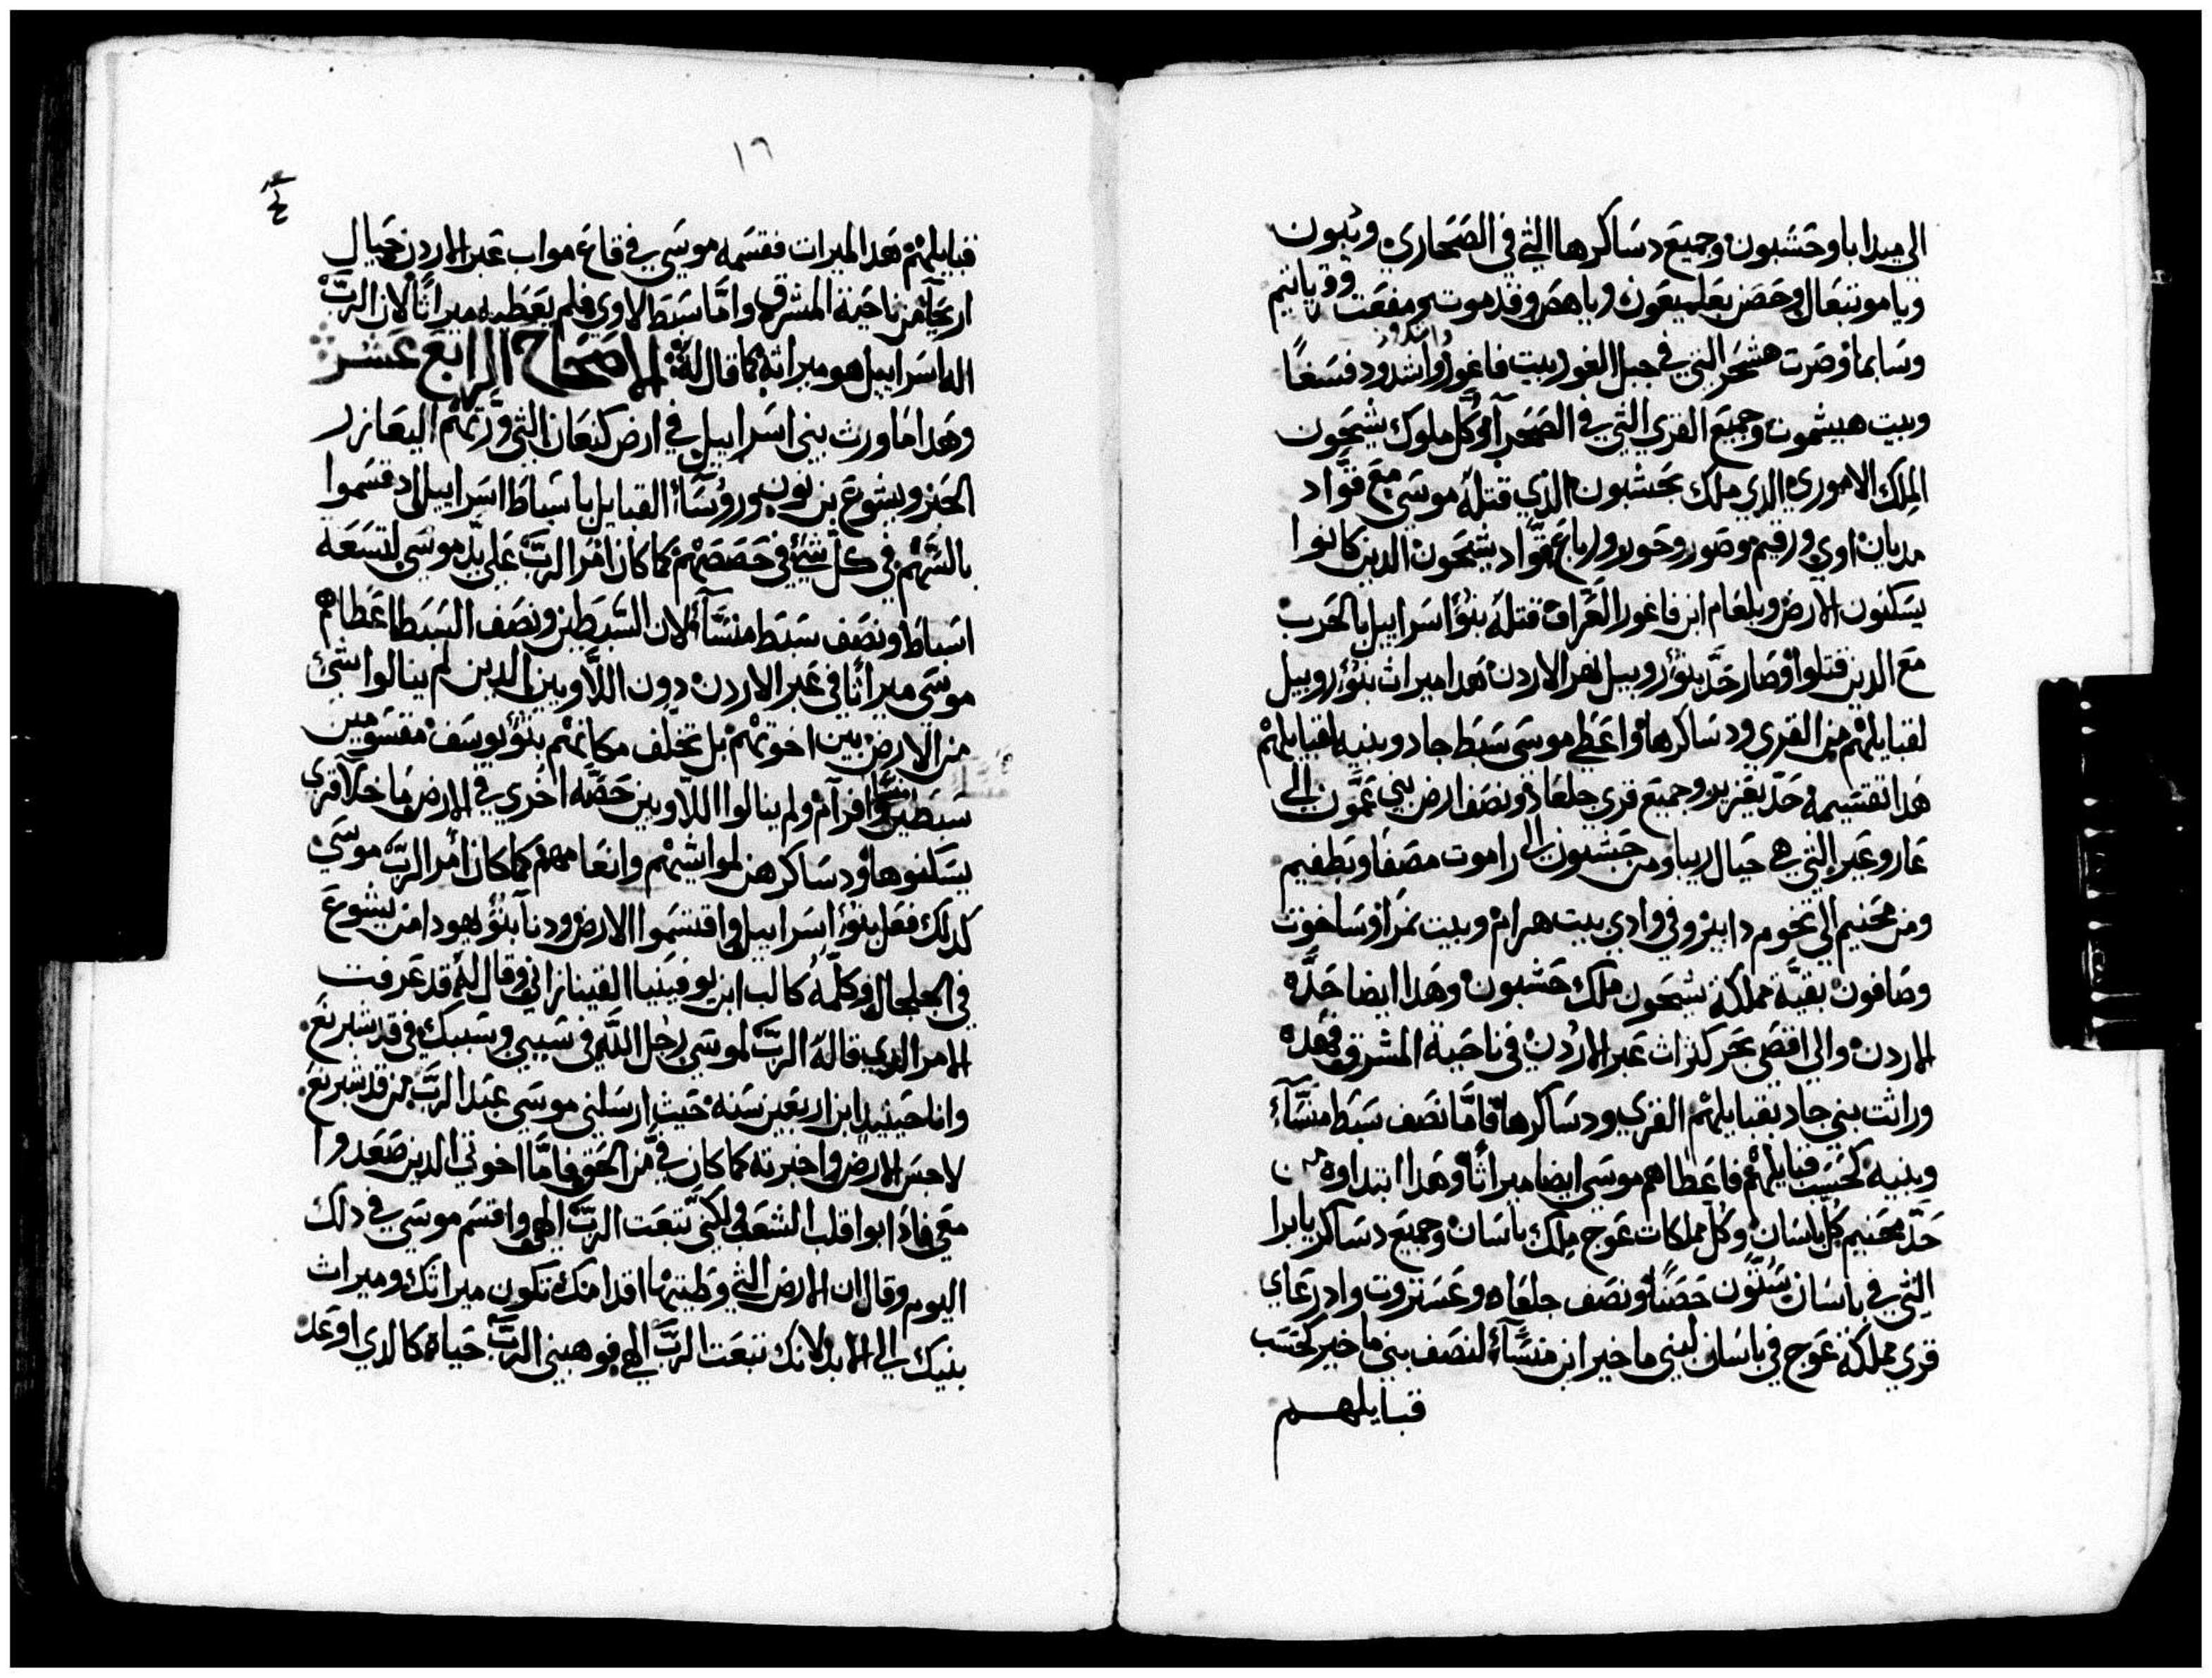 الي ميدابا وحشبون وجميع دساكرها التي في الصحاري وتبون
وياموتبعال وحصن بعلميعون وياهص وقدموت ومفعت وقرياتيم
وسابما وصرت هشحر التي في جبل الغور وبيت فاغور واشدود فسغا
واشدود
وبيت هيشموت وجميع القري التي في الصحرآ وكل ملوك يشيحون
الملك الاموري الدي ملك بحشبون الذي قتله موسي مع قواد
مديان اوي ورقيم وصور وحور ورباع قواد يشيحون الدين كانوا
يسكنون الارض وبلعام ابن فاغور العراف قتله بنو اسراييل بالحرب
مع الدين قتلوا وصار حد بنو روبيل نهر الاردن هدا ميراث بنو روبيل
لقبايلهم من القري ودساكرها واعطي موسي سبط جاد وبنيه لقبايلهم
هدا تقتسيمه حد يعزير وجميع قري جلعاد ونصف ارض بني عمون الي
عاروعير التي هي حيال ربا ومن حشبون الي راموت مصفا وبطفيم
ومن محنيم الي تخوم دابير وفي وادي بيت هرام وبيت نمرا وساخوت
وصافون بقية مملكة يشيحون ملك حشبون وهدا ايضا حده
الاردن والي اقصي بحر كنرات عبر الاردن في ناحية المشرق فهده
وراثت بني جاد بقبايلهم القري ودساكرها فاما نصف سبط منسآء
وبنيه كحسب قبايلهم فاعطاهم موسي ايضا ميراثا وهدا ابتداوه من
حد محنيم كل باسان وكل مملكات عوج ملك باسان وجميع دساكر يابرا
التي في باسان ستون حصنا ونصف جلعاد وعستروت وادرعاي
قري مملكة عوج في باسان لبني ماخير ابن منسآء لنصف بني ماخير كحسب
قبايلهم
١٦
قبايلهم هدا الميرات فقسمه موسي في قاع مواب عبر الاردن حيال
اريحآ من ناحية المشرق واما سبط لاوي فلم يعطيه ميراثا لان الرب
اله اسراييل هو ميراثه كما قال له الاصحاح الرابع عشر
وهدا ما ورث بني اسراييل في ارض كنعان التي ورثهم اليعازر
الحبر ويشوع بن نون وروسآء القبايل باسباط اسراييل اد قسموا
بالسهم في كل شي في حصصهم كما كان امر الرب علي يد موسي لتسعه
اسباط ونصف سبط منسآء لان السبطين ونصف السبط اعطاهم
موسي ميراثا في عبر الاردن دون اللاويين الدين لم ينالوا شي
من الارض بين اخوتهم بل تخلف مكانهم بنو يوسف مقسومين
سبطين منسا وافرآم ولم ينالوا اللاويين حصه اخري في الارض ما خلا قري
يسكنوها ودساكرهن لمواشيهم وانعامهم كما كان امر الرب موسي
كدلك فعل بنو اسراييل واقتسموا الارض ودنآ بنو يهودا من يشوع
في الجلجال وكلمه كالب ابن يوفينيا القينازاني وقال له قد عرفت
الامر الدي قاله الرب لموسي رجل الله في سببي وسببك في قدشبرنع
وانا حينيد ابن اربعين سنه حيث ارسلني موسي عبد الرب من قدشبرنع
لاجس الارض واخبرته كما كان في من الحق فاما اخوتي الدين صعدوا
معي فادابوا قلب الشعب ولكني تبعت الرب الهي واقسم موسي في دلك
اليوم وقال ان الارض التي وطيتها اقدامك تكون ميراتك وميراث
بنيك الي الابد لانك تبعت الرب الهي فوهبني الرب حياة كالدي اوعد